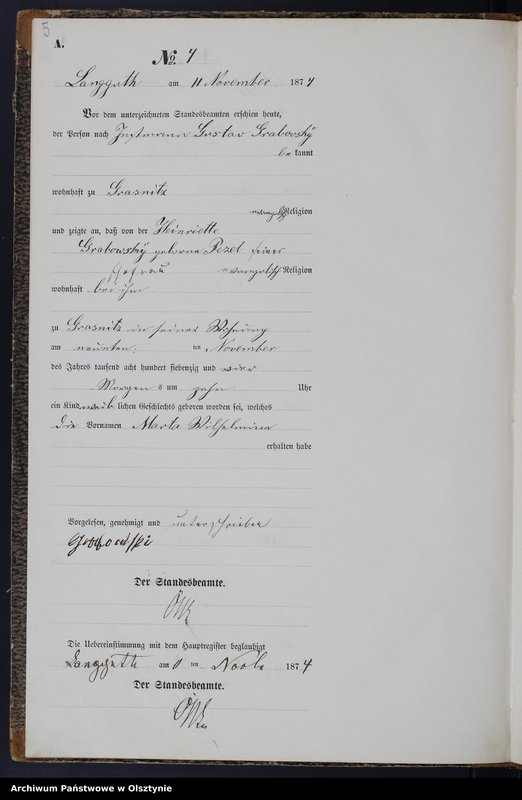 5
A.
No. 4
Langguth am 11 November 1874
Vor dem unterzeichneten Standesbeamten erschien heute,
der Person nach Gustav Grabovsky
be kannt
wohnhaft zu Grasnitz
evangelisch Religion
und zeigte an, daß von der Hinriette
Grabowsky geborne Pezel seiner
Ehefrau evangelisch Religion
wohnhaft bei ihm
zu Grasnitz in seiner Wohnung
am neunten ten November
des Jahres tausend acht hundert siebenzig und vier
Morgen s um zehn Uhr
ein Kind weib lichen Geschlechts geboren worden sei, welches
die Vornamen Marta Wilhelmine
erhalten habe
Vorgelesen, genehmigt und unterschrieben
Der Standesbeamte.
Die Uebereinstimmung mit dem Hauptregister beglaubigt
Langguth am ten 1874
Der Standesbeamte.
Archiwum Państwowe w Olsztynie